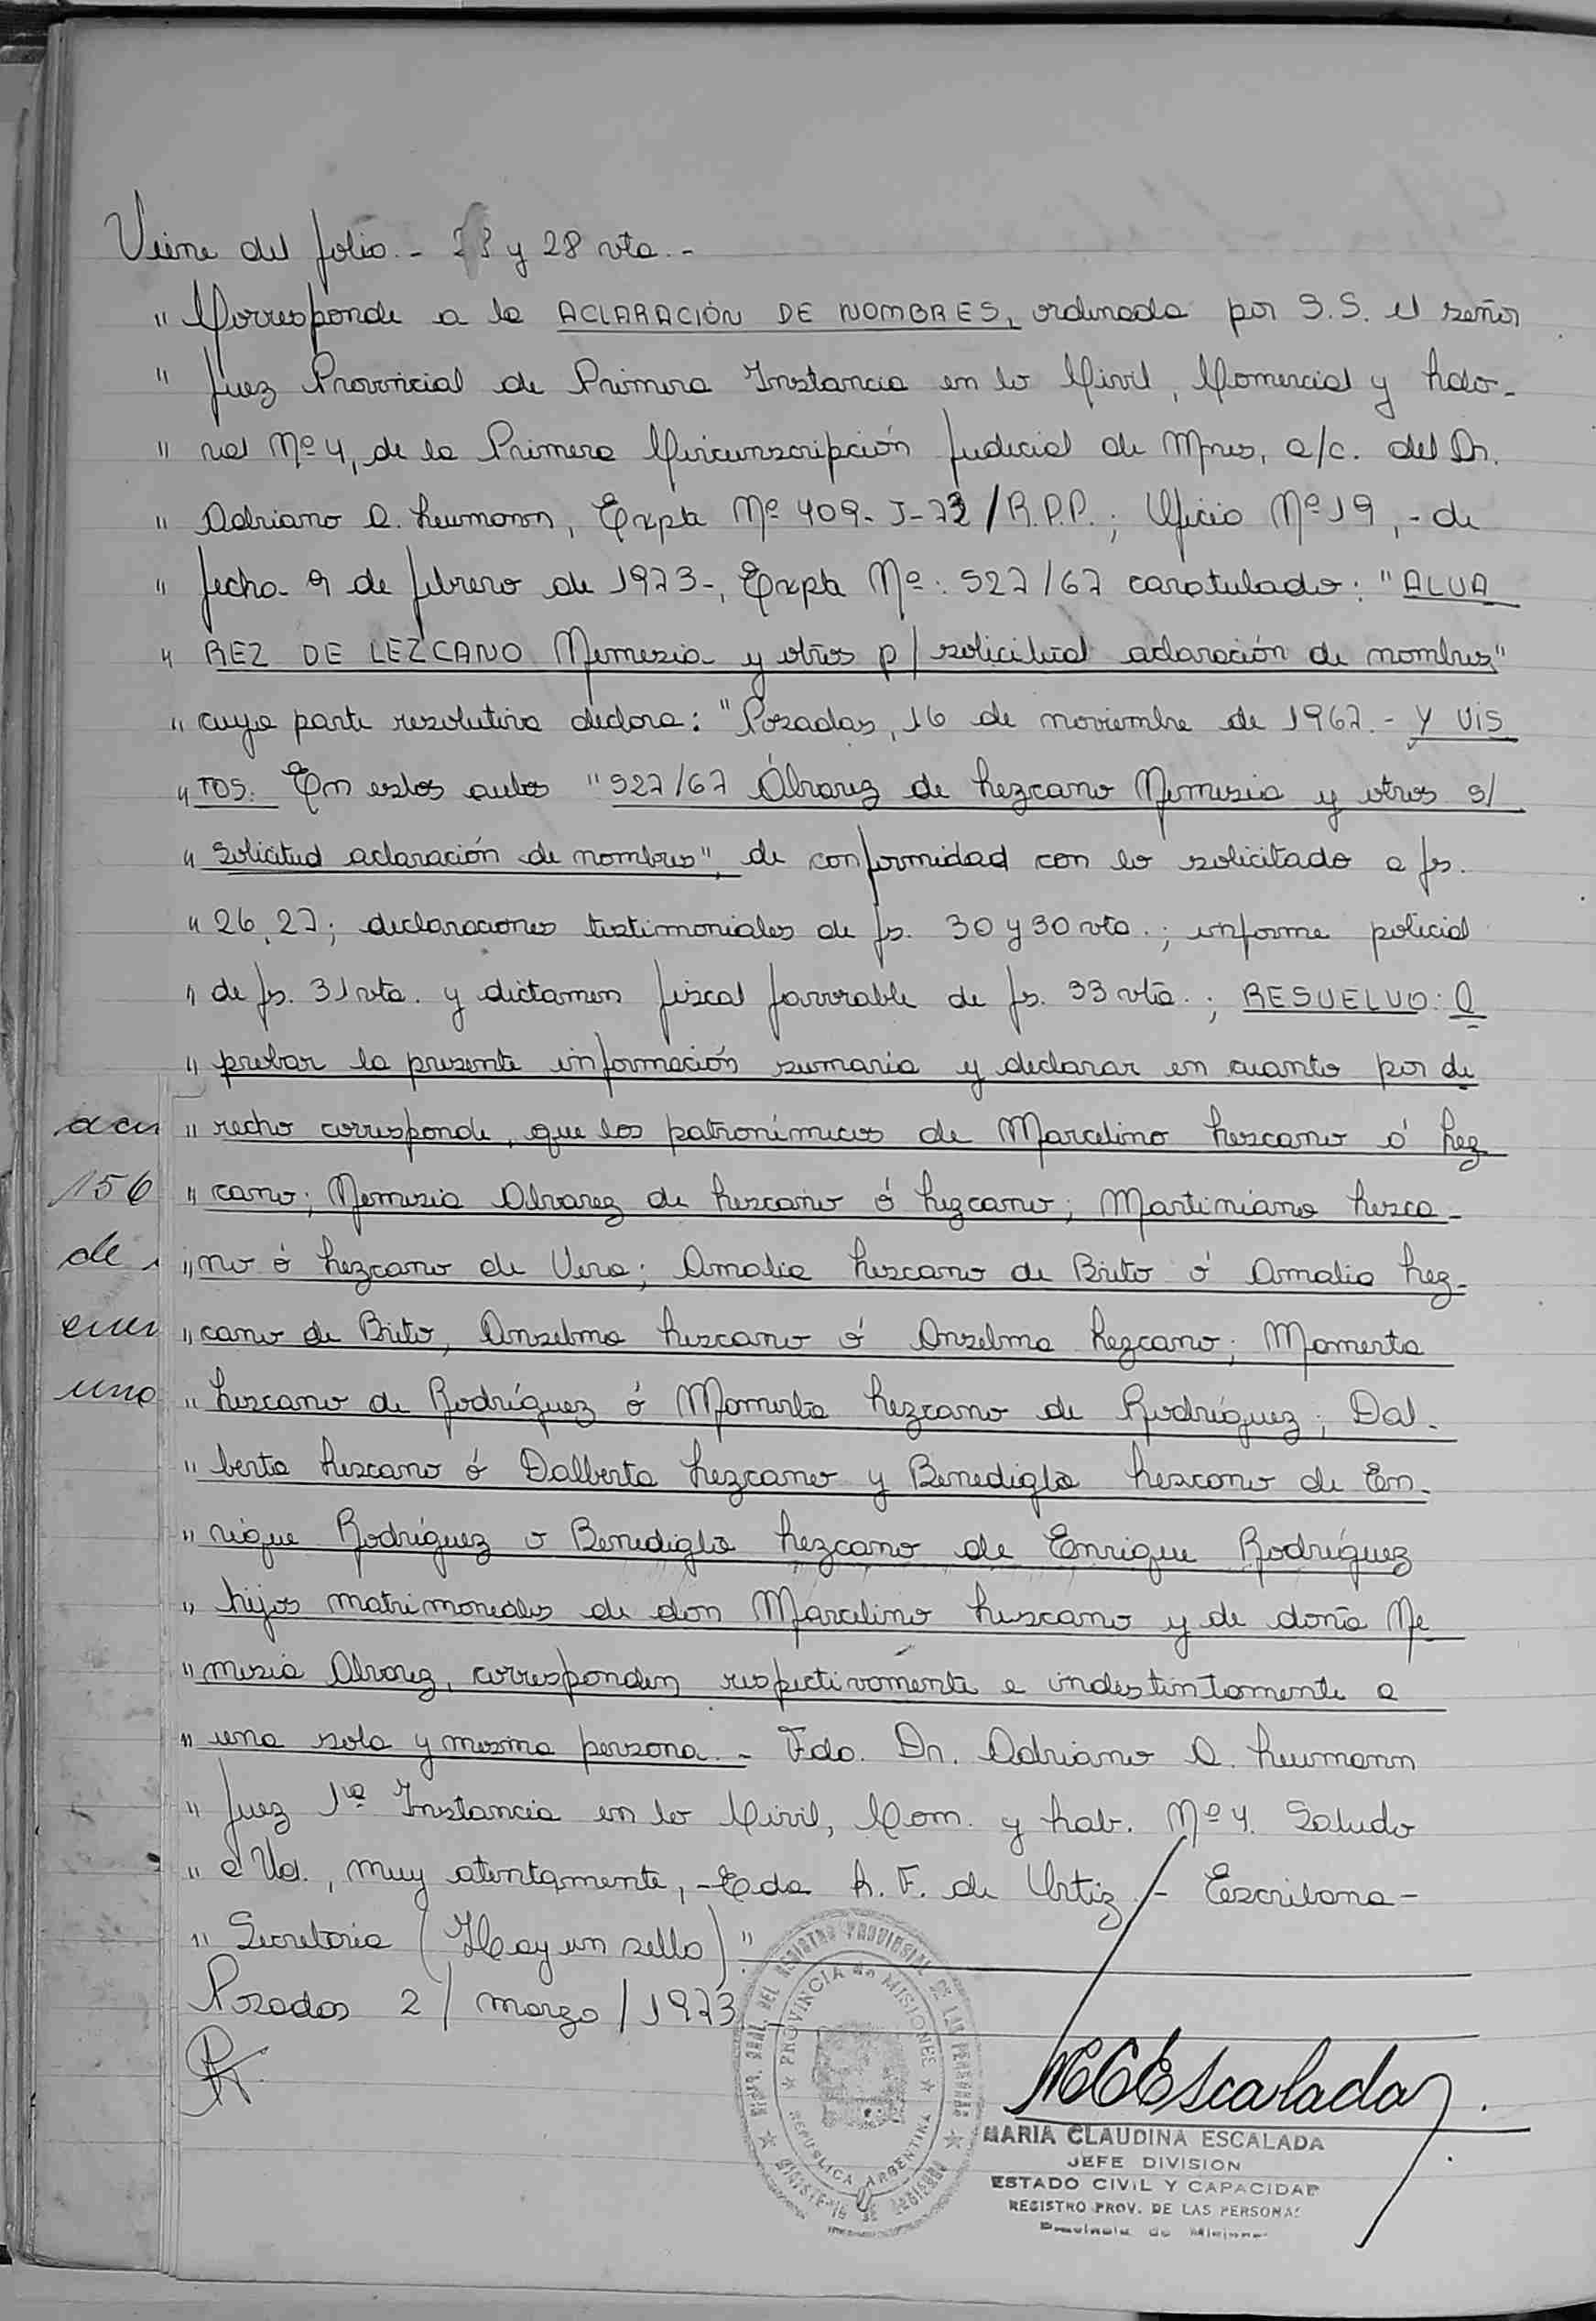 Viene del folio.- 28 y 28 vta.-
" Corresponde a la ACLARACIÓN DE NOMBRES, ordenada por S.S. el señor
" Juez Provincial de Primera Instancia en lo Civil, Comercial y Labo-
" ral Nº 4, de la Primera Circunscripción Judicial de Mnes, a/c. del Dr.
" Adriano A. Leumann, Expte Nº 409-J-73/R.P.P.; Oficio Nº 19,- de
" fecha 9 de febrero de 1973-, Expte Nº: 527/67 caratulado: "ALVA
" REZ DE LEZCANO Nemesia y otros p/ solicitud aclaración de nombres"
" cuya parte resolutiva declara: "Posadas, 16 de noviembre de 1967.- Y VIS
" TOS: En estos autos "527/67 Álvarez de Lezcano Nemesia y otros s/
" Solicitud aclaración de nombres", de conformidad con lo solicitado a fs.
" 26, 27; declaraciones testimoniales de fs. 30 y 30 vta.; informe policial
" de fs. 31 vta. y dictamen fiscal favorable de fs. 33 vta.; RESUELVO: A
" probar la presente información sumaria y declarar en cuanto por de
" recho corresponde, que los patronímicos de Marcelino Lescano ó Lez
" cano; Nemesia Alvarez de Lescano ó Lezcano; Martiniana Lesca-
" no ó Lezcano de Vera; Amalia Lescano de Brito ó Amalia Lez-
" cano de Brito, Anselma Lescano ó Anselma Lezcano; Mamerta
" Lescano de Rodríguez ó Mamerta Lezcano de Rodríguez; Dal-
" berta Lescano ó Dalberta Lezcano y Benedigla Lescano de En-
" rique Rodríguez o Benedigla Lezcano de Enrique Rodríguez
" hijos matrimoniales de don Marcelino Lescano y de doña Ne
" mesia Alvarez, corresponden respectivamente e indestintamente a
" una sola y misma persona.- Fdo. Dr. Adriano A. Leumann
" Juez 1ra Instancia en lo Civil, Com. y Lab. Nº 4. Saludo
" a Ud., muy atentamente,- Eda L. F. de Ortiz.- Escribana-
" Secretaria (Hay un sello)"
Posadas 2/marzo/1973.-
acu
156
de
ener
una
DIREC. GRAL. DEL REGISTRO PROVINCIAL DE LAS PERSONAS
PROVINCIA de MISIONES
REPUBLICA ARGENTINA
MCEscalada
MARIA CLAUDINA ESCALADA
JEFE DIVISION
ESTADO CIVIL Y CAPACIDAD
REGISTRO PROV. DE LAS PERSONAS
Provincia de Misiones